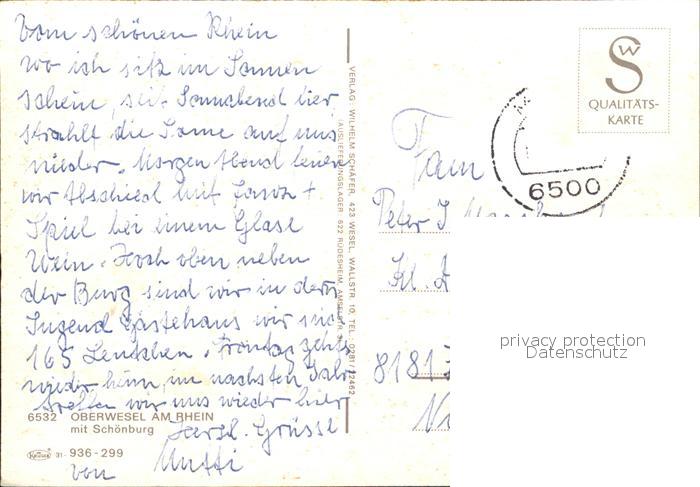 Vom schönen Rhein
wo ich sitz im Sonnen
schein, seit Sonnabend hier
strahlt die Sonne auf uns
nieder. Morgen Abend feiern
wir Abschied mit Tanz +
Spiel bei einem Glase
Wein. Hoch oben neben
der Burg sind wir in dem
Jugend Gästehaus wir sind
165 Leutchen. Freitag gehts
wieder heim, im nächsten Jahr
treffen wir uns wieder hier
Herzl. Grüsse
von Mutti
6532 OBERWESEL AM RHEIN
mit Schönburg
31- 936-299
VERLAG: WILHELM SCHÄFER, 423 WESEL, WALLSTR. 10, TEL. 0281/22462
(AUSLIEFERUNGSLAGER: 622 RÜDESHEIM,
SW
QUALITÄTS-
KARTE
6500
Fam
Peter
Kl.
8181
privacy protection
Datenschutz